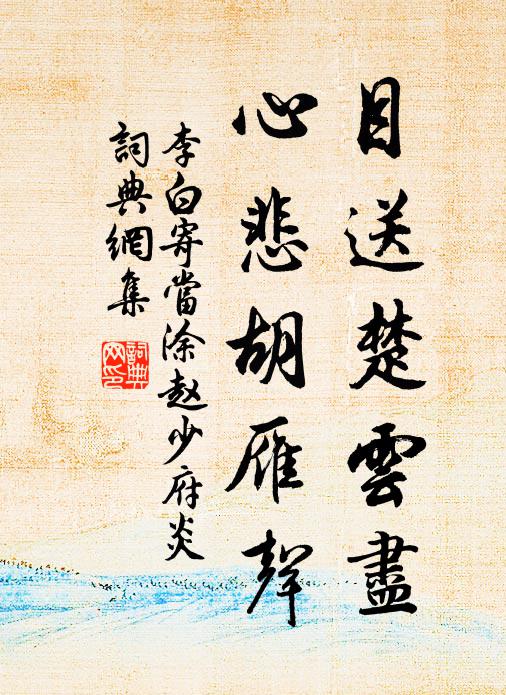 目送楚雲盡
心悲胡雁聲
李白寄當涂赵少府炎
詞典網集
詞典
网印